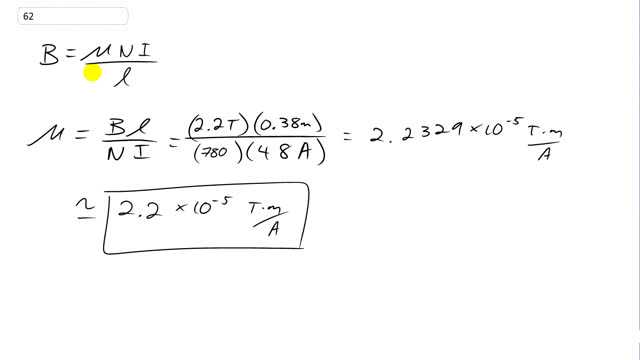 62
B = μNI/l
μ = Bl/NI = (2.2T)(0.38m)/(780)(48A) = 2.2329 × 10⁻⁵ T·m/A
≃ 2.2 × 10⁻⁵ T·m/A